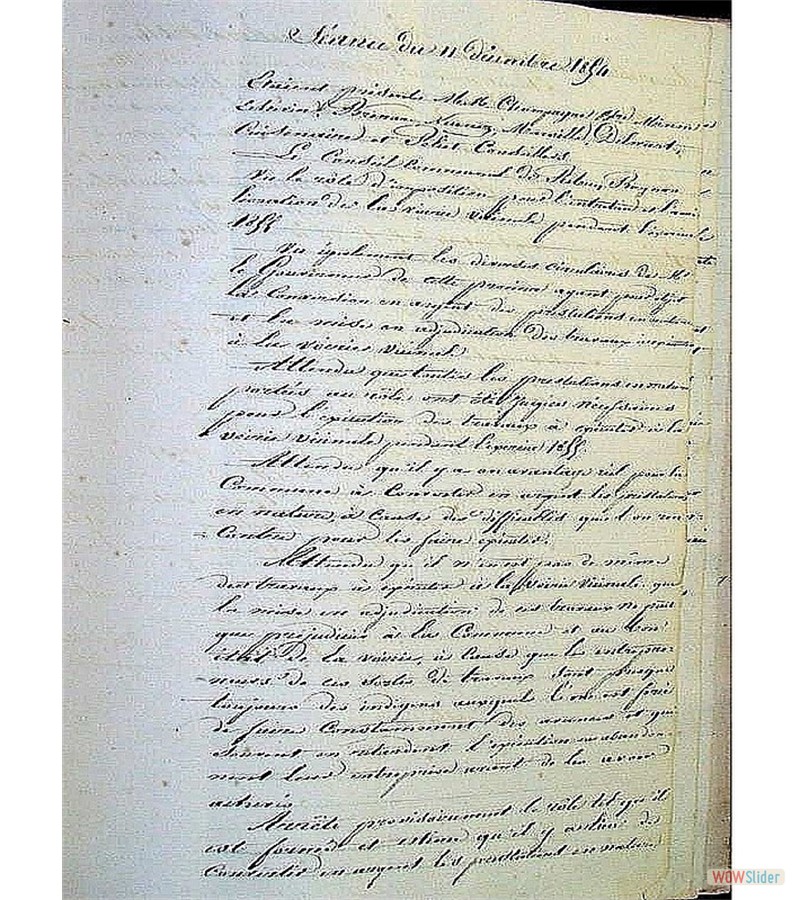 Séance du 11 décembre 1854
Etaient présents M.M. Champagne
Echevin, Naveau, Marville, Delvaux,
et Petit Conseillers
Le Conseil Communal de
Vu le rôle d'imposition pour l'entretien et l'amé
lioration de la voirie vicinale pendant l'exercice
1855
Vu également les diverses circulaires de Mr
le Gouverneur de cette province ayant pour objet
la Conversion en argent des prestations en nature et
et la mise en adjudication des travaux
à la voirie vicinale
Attendu que toutes les prestations en nature
portées au rôle ont été jugées nécessaires
pour l'exécution des travaux à exécuter à la
voirie vicinale pendant l'exercice 1855.
Attendu qu'il y a un avantage réel pour la
Commune à Convertir en argent les prestations
en nature, à cause des difficultés que l'on ren
contre pour les faire exécuter.
Attendu qu'il n'en est pas de même
des travaux à exécuter à la voirie vicinale, que
la mise en adjudication de ces travaux ne peut
que préjudicier à la Commune et au bon
état de la voirie, à cause que les entrepre
neurs de ces sortes de travaux sont presque
toujours des indigens auxquels l'on est forcé
de faire Constamment des avances et qui
souvent en retardent l'exécution ou abandon
nent leur entreprise avant de les avoir
achevés
Arrête provisoirement le rôle tel qu'il
est formé et estime qu'il y a lieu de
Convertir en argent les prestations en nature
WOWSlider